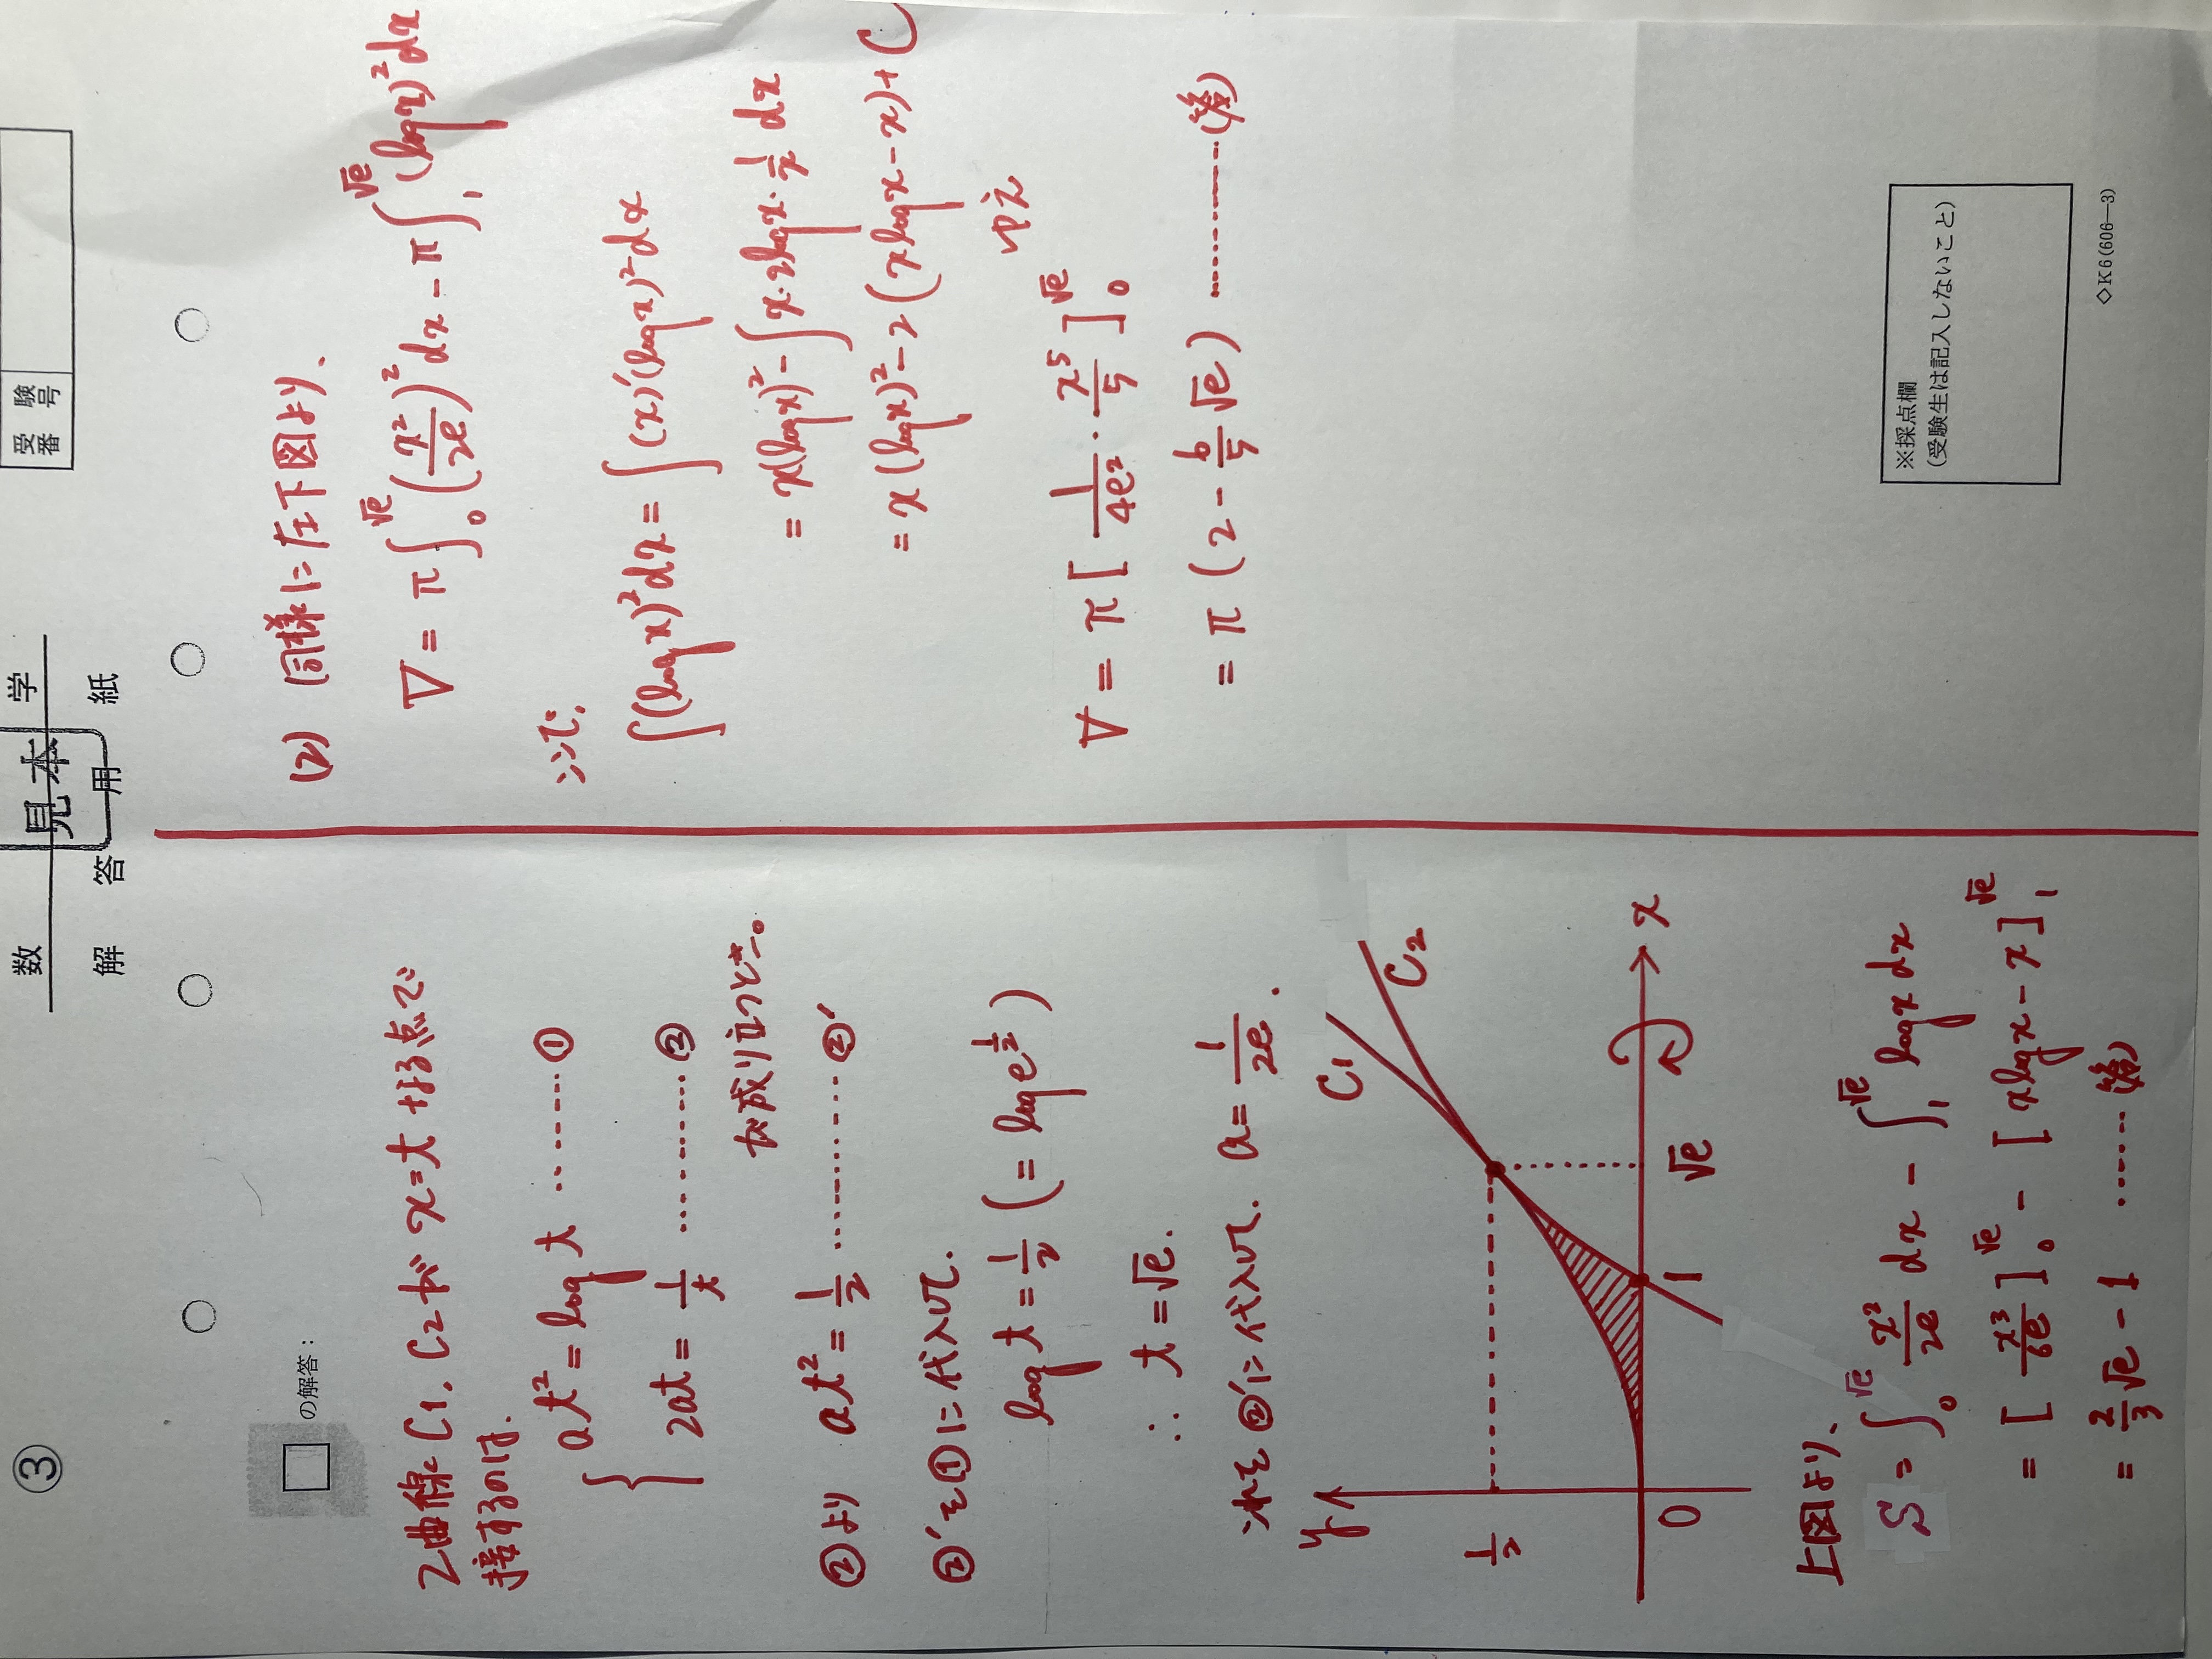 ③
数 学
見本
解 答 用 紙
受験番号
□の解答:
2曲線 C1, C2が x=t なる点で
接するのは.
{ at² = log t ……… ①
2at = 1/t ……… ②
が成り立つとき。
②より at² = 1/2 ……… ②'
②'を①に代入して.
log t = 1/2 (= log e^{1/2})
∴ t = √e.
これを②'に代入して. a = 1/2e.
y
C1
C2
1/2
O
1
√e
x
上図より、
S = ∫₀^{√e} x²/2e dx - ∫₁^{√e} log x dx
= [x³/6e]₀^{√e} - [x log x - x]₁^{√e}
= 2/3 √e - 1 ……(答)
(2) 同様に左下図より、
V = π∫₀^{√e} (x²/2e)² dx - π∫₁^{√e} (log x)² dx
ここで.
∫(log x)² dx = ∫(x)'(log x)² dx
= x(log x)² - ∫x・2log x・1/x dx
= x(log x)² - 2(x log x - x) + C
ゆえ
V = π[1/4e²・x⁵/5]₀^{√e}
= π(2 - 6/5 √e) ………(答)
※採点欄
(受験生は記入しないこと)
◇K6(606—3)